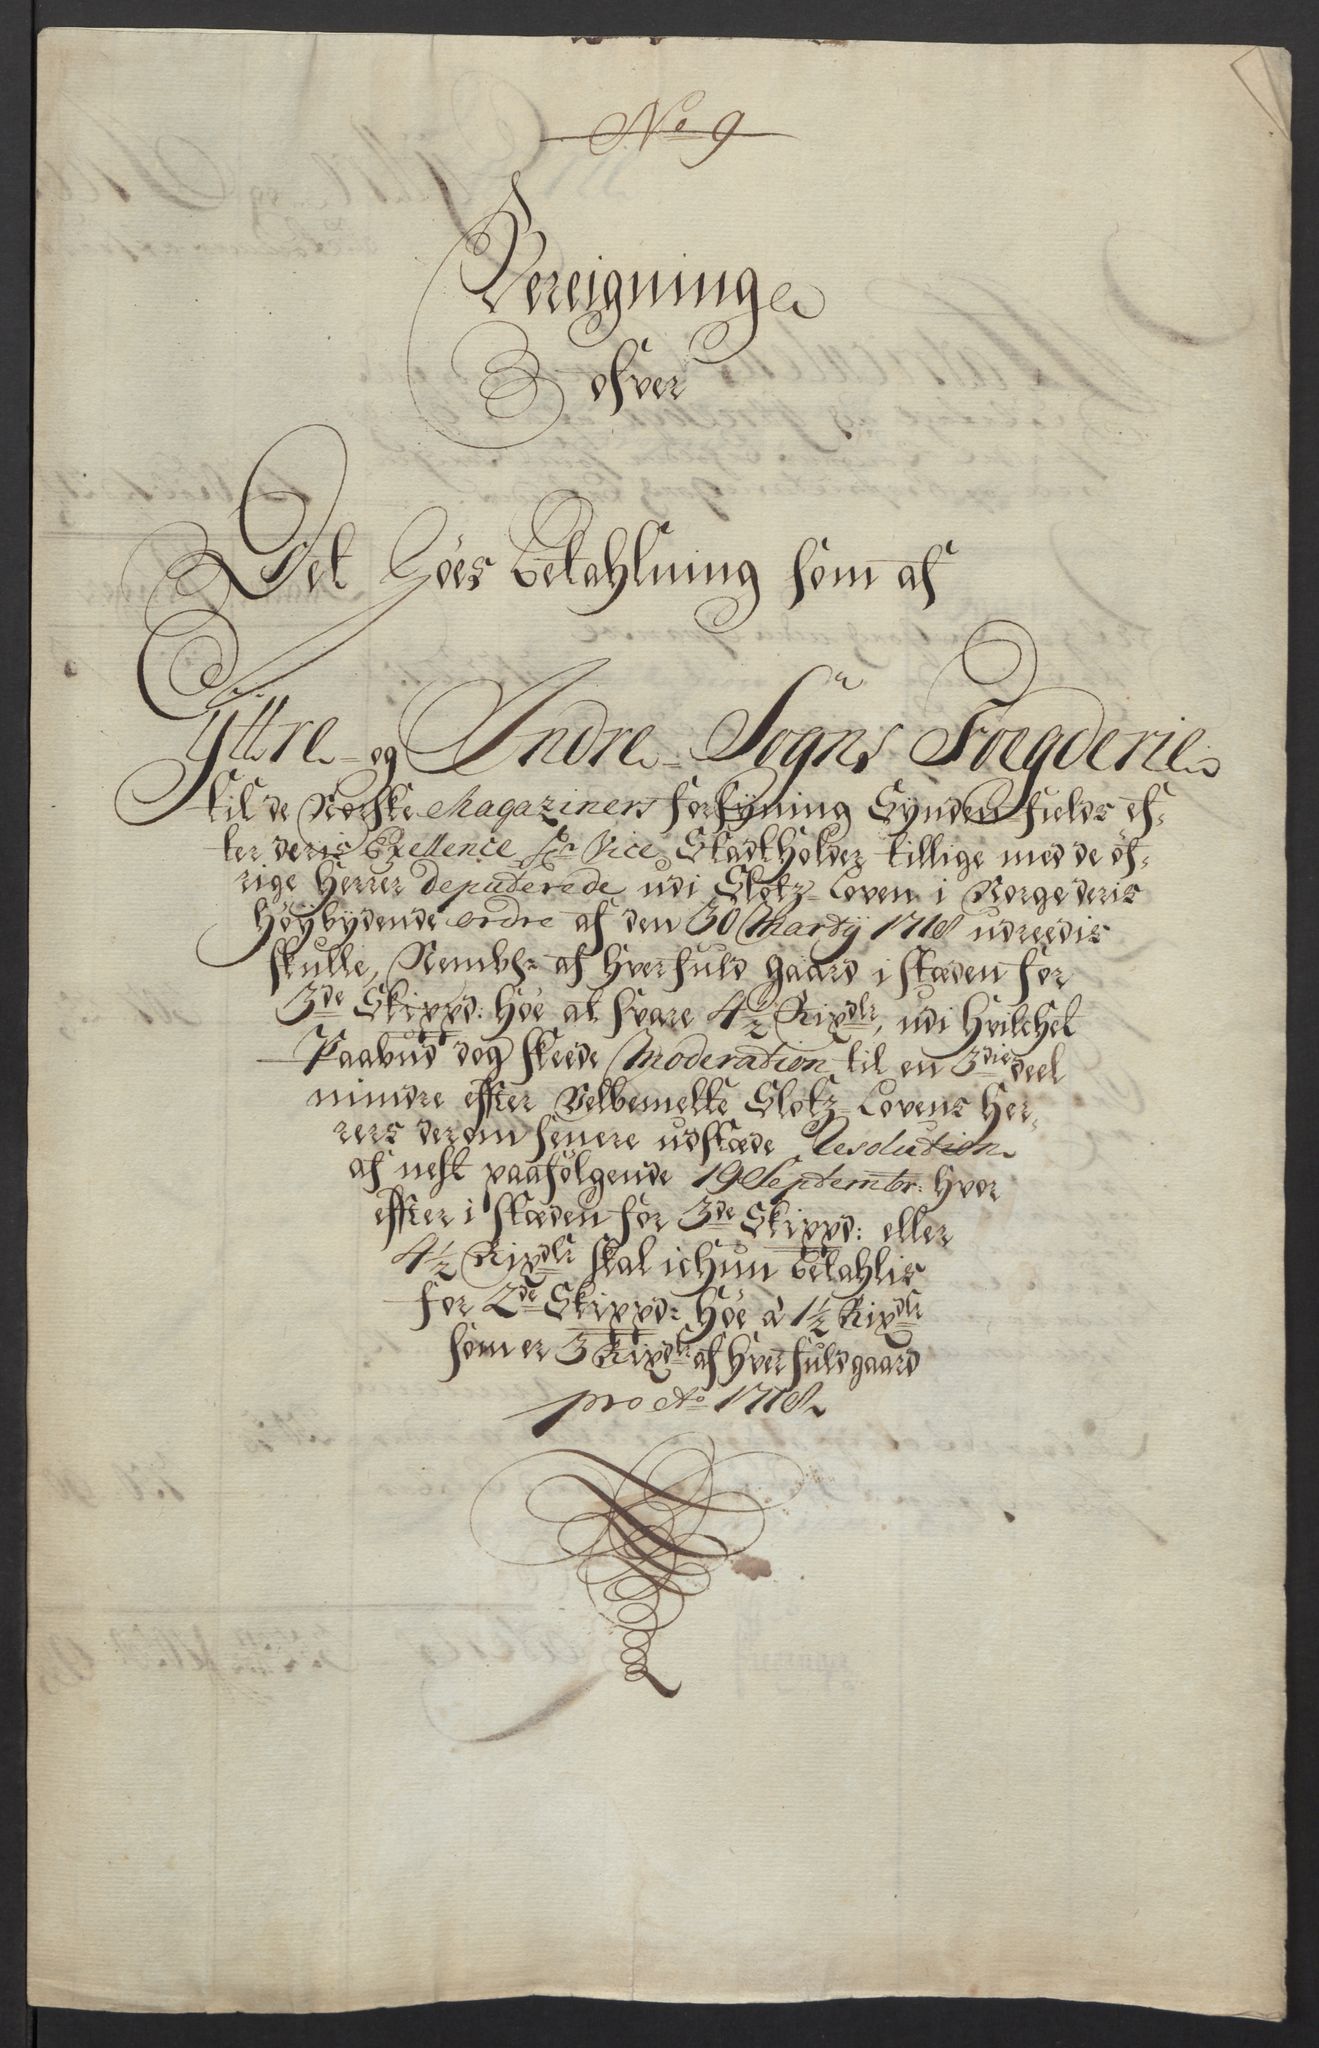 No 9
Bereigning
ofver
Det Höes betahlning som af
Yttre og Indre Sogns Foegderie
til de Norske Magaziners forsyning Synden fields ef-
ter deris Exellence Hr Vice Stadtholder tillige med de öf-
rige Herrer deputerede udi Slotz Loven i Norge deris
Höybydende ordre af den 30 Marty 1718 udreedis
skulle, Nembl: af hver fuld gaard i stæden for
3de Skippd: höe at svare 4½ Rixdlr, udi hvilchet
Paabud dog skeede Moderation til en 3die deel
mindre effter Velbemelte Slotz Lovens Her-
rers derom senere udstæde Resolution
af nest paafölgende 19 Septembr: hvor
effter i stæden for 3de Skippd: eller
4½ Rixdlr skal ichun betahlis
for 2de Skippd: höe a 1½ Rixdlr
som er 3 Rixdlr af hver fuldgaard
pro Ao 1718